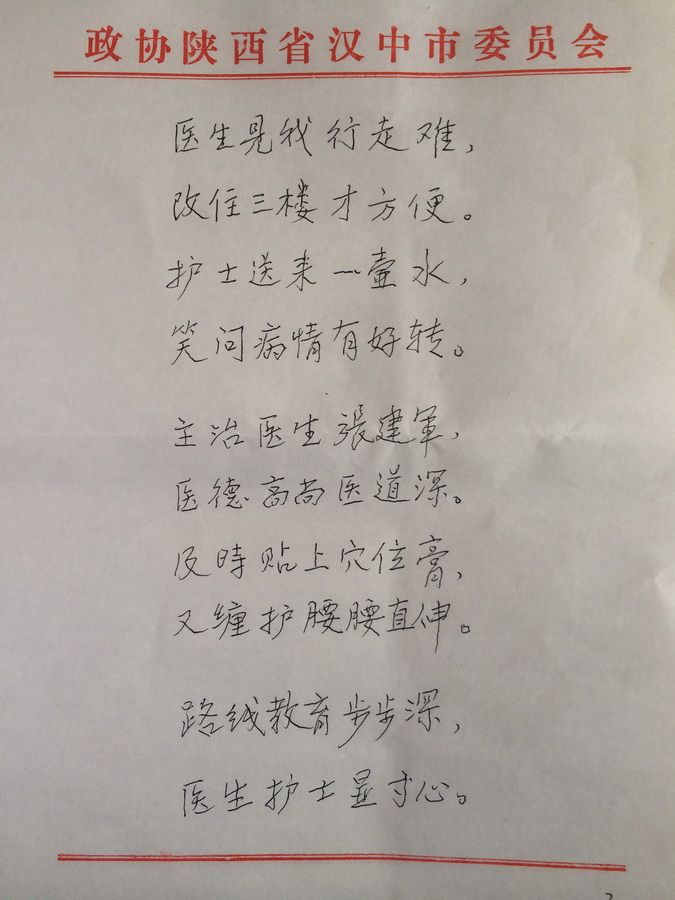 政协陕西省汉中市委员会
医生見我行走难，
改住三楼才方便。
护士送来一壶水，
笑问病情有好转。
主治医生張建軍，
医德高尚医道深。
及時贴上穴位膏，
又缠护腰腰直伸。
路线教育步步深，
医生护士显寸心。